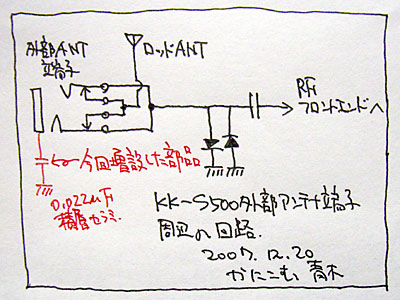 外部ANT
端子
ロッドANT
RF
フロントエンドへ
今回増設した部品
0.022μF
積層セラミ.
KK-S500外部アンテナ端子
周辺の回路.
2007.12.20
かにこむ 青木